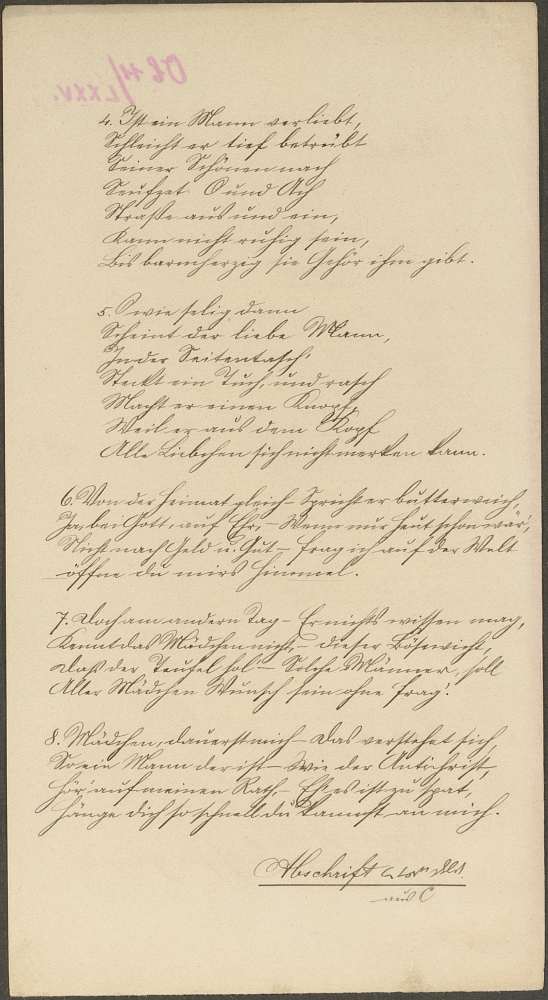 4. Ist ein Mann verliebt,
Schleicht er tief betrübt
Seiner Schönen nach
Seufzet O und Ach
Straße aus und ein,
Kann nicht ruhig sein,
Bis barmherzig sie Gehör ihm gibt.
5. O wie selig dann
Scheint der liebe Mann,
In der Seitentasch'
Steckt ein Tuch, und rasch
Macht er einen Knopf,
Weil er aus dem Kopf
Alle Liebchen sich nicht merken kann.
6. Von der Heirat gleich – Spricht er butterweich,
Ja, bei Gott, auf Ehr, – Wenns nur heut schon wär',
Nicht nach Geld u. Gut – frag ich auf der Welt
öffne du mirs Himmel.
7. Doch am andern Tag – Er nichts wissen mag,
Kennt das Mädchen nicht, – dieser Bösewicht,
Daß der Teufel hol' – Solche Männer, soll
Aller Mädchen Wunsch sein ohne Frag!
8. Mädchen, dauerst mich – Das verstehet sich,
So ein Mann der ist – Wie der Antichrist,
Hör' auf meinen Rath, – Eh' es ist zu spat,
Hänge dich so schnell du kannst an mich.
Abschrift
aus C